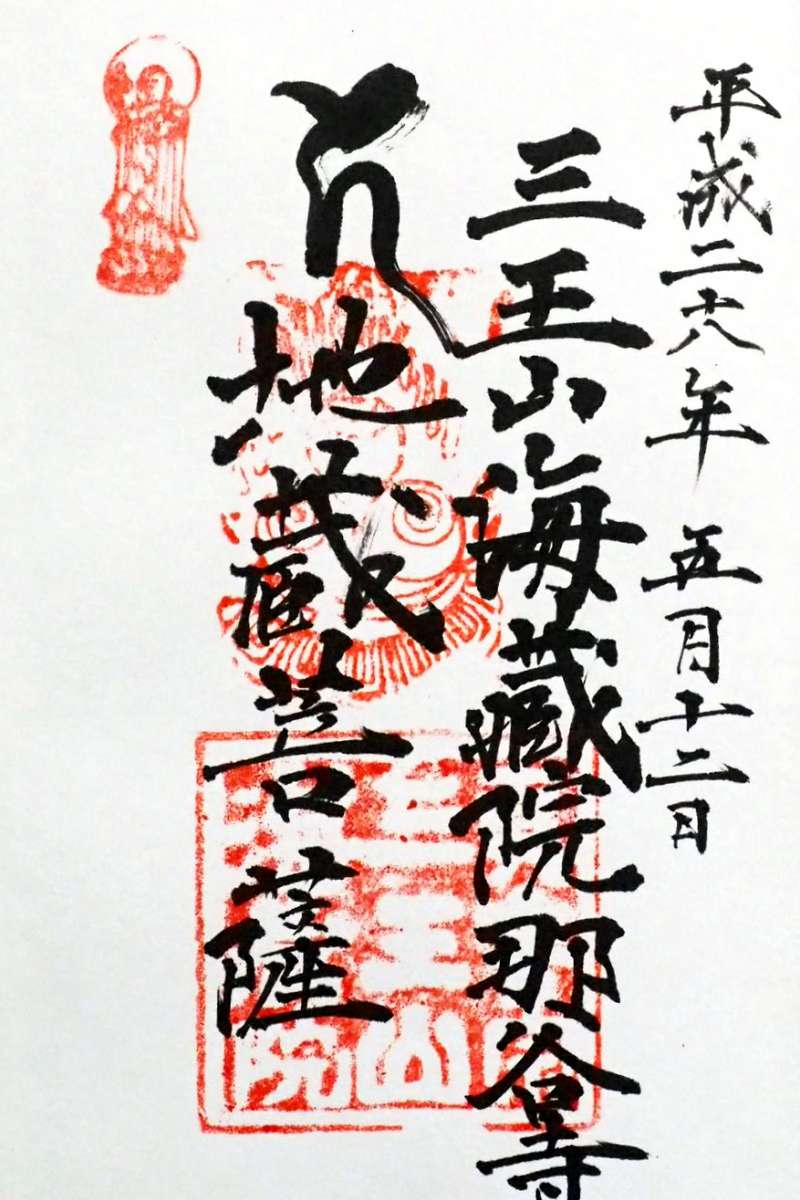 平成二十八年 五月十二日
三王山海蔵院那谷寺
地蔵菩薩
三王山